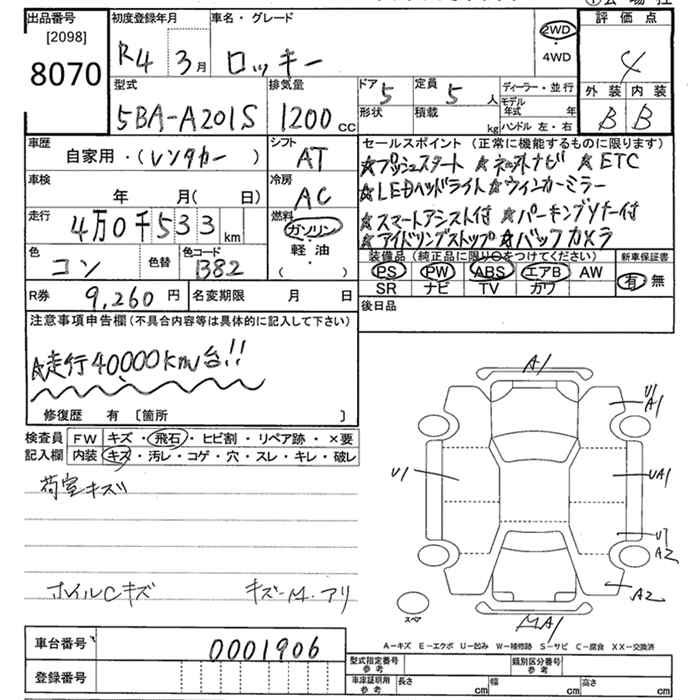 出品番号 初度登録年月 車名・グレード 評価点
[2098]
8070 R4 3月 ロッキー 2WD ・ 4WD 4
型式 排気量 ドア 5 定員 5人 ディーラー・並行 外装 内装
5BA-A201S 1200cc 形状 積載 kg モデル年式 年 B B
ハンドル 左・右
車歴 シフト セールスポイント (正常に機能するものに限ります)
自家用・(レンタカー) AT ☆プッシュスタート ☆ネットナビ ☆ETC
車検 冷房 ☆LEDヘッドライト ☆ウィンカーミラー
年 月(日) AC
走行 燃料 ☆スマートアシスト付 ☆パーキングソナー付
4万0千533km ガソリン ☆アイドリングストップ ☆バックカメラ
色 色替 色コード ・軽油 装備品 (純正品に限り○をつけてください) 新車保証書
コン B82 ・( ) PS PW ABS エアB AW 有 無
SR ナビ TV カワ
R券 9,260円 名変期限 月 日 後日品
注意事項申告欄(不具合内容等は具体的に記入して下さい)
☆走行40000km台!!
修復歴 有 〔箇所 〕
検査員 FW キズ・飛石・ヒビ割・リペア跡・×要
記入欄 内装 キズ・汚レ・コゲ・穴・スレ・キレ・破レ
荷室キズ
ホイルCキズ キズ-M.アリ
A1
U1
A1
U1
UA1
U1
A2
A2
MA1
スペア
A-キズ E-エクボ U-凹み W-補修跡 S-サビ C-腐食 XX-交換済
車台番号 0001906
登録番号
型式指定番号 参考 類別区分番号 参考
車庫証明用 参考 長さ cm 幅 cm 高さ cm